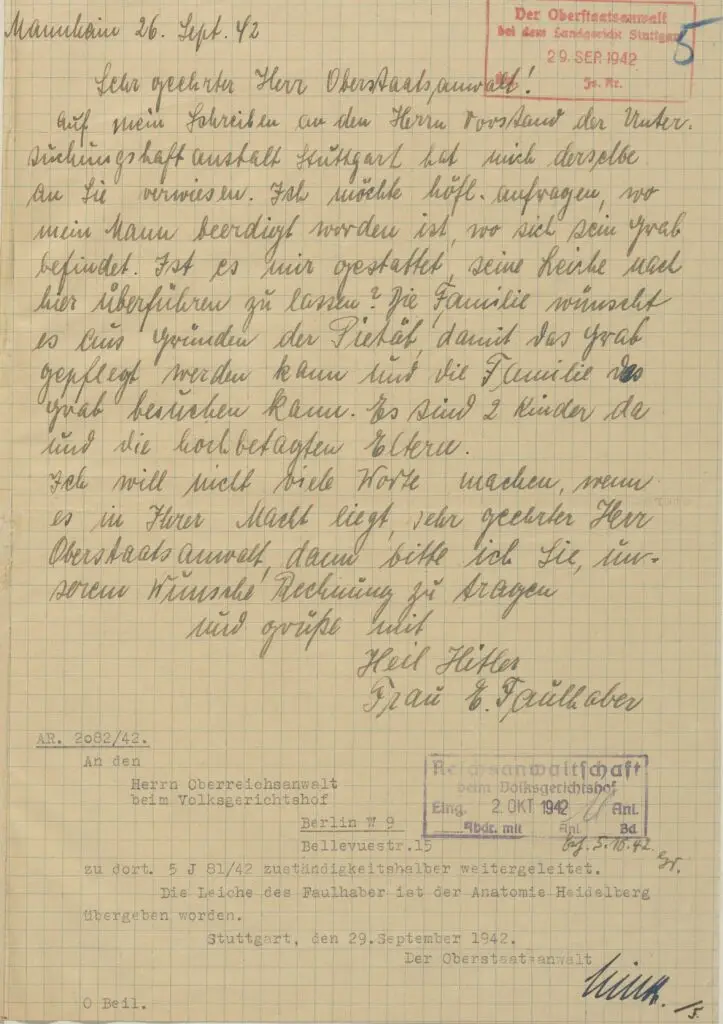 Mannheim 26. Sept. 42
Der Oberstaatsanwalt
bei dem Landgericht Stuttgart
29. SEP. 1942
Js. Nr.
5
Sehr geehrter Herr Oberstaatsanwalt!
Auf mein Schreiben an den Herrn Vorstand der Unter-
suchungshaftanstalt Stuttgart hat mich derselbe
an Sie verwiesen. Ich möchte höfl. anfragen, wo
mein Mann beerdigt worden ist, wo sich sein Grab
befindet. Ist es mir gestattet, seine Leiche nach
hier überführen zu lassen? Die Familie wünscht
es aus Gründen der Pietät, damit das Grab
gepflegt werden kann und die Familie das
Grab besuchen kann. Es sind 2 Kinder da
und die hochbetagten Eltern.
Ich will nicht viele Worte machen, wenn
es in Ihrer Macht liegt, sehr geehrter Herr
Oberstaatsanwalt, dann bitte ich Sie, un-
serem Wunsche Rechnung zu tragen
und grüße mit
Heil Hitler
Frau E. Faulhaber
AR. 2082/42.
An den
Herrn Oberreichsanwalt
beim Volksgerichtshof
Berlin W 9
Bellevuestr.15
Reichsanwaltschaft
beim Volksgerichtshof
Eing. 2. OKT. 1942 Anl.
Abdr. mit Anl. Bd.
5.10.42.
zu dort. 5 J 81/42 zuständigkeitshalber weitergeleitet.
Die Leiche des Faulhaber ist der Anatomie Heidelberg
übergeben worden.
Stuttgart, den 29.September 1942.
Der Oberstaatsanwalt
0 Beil.